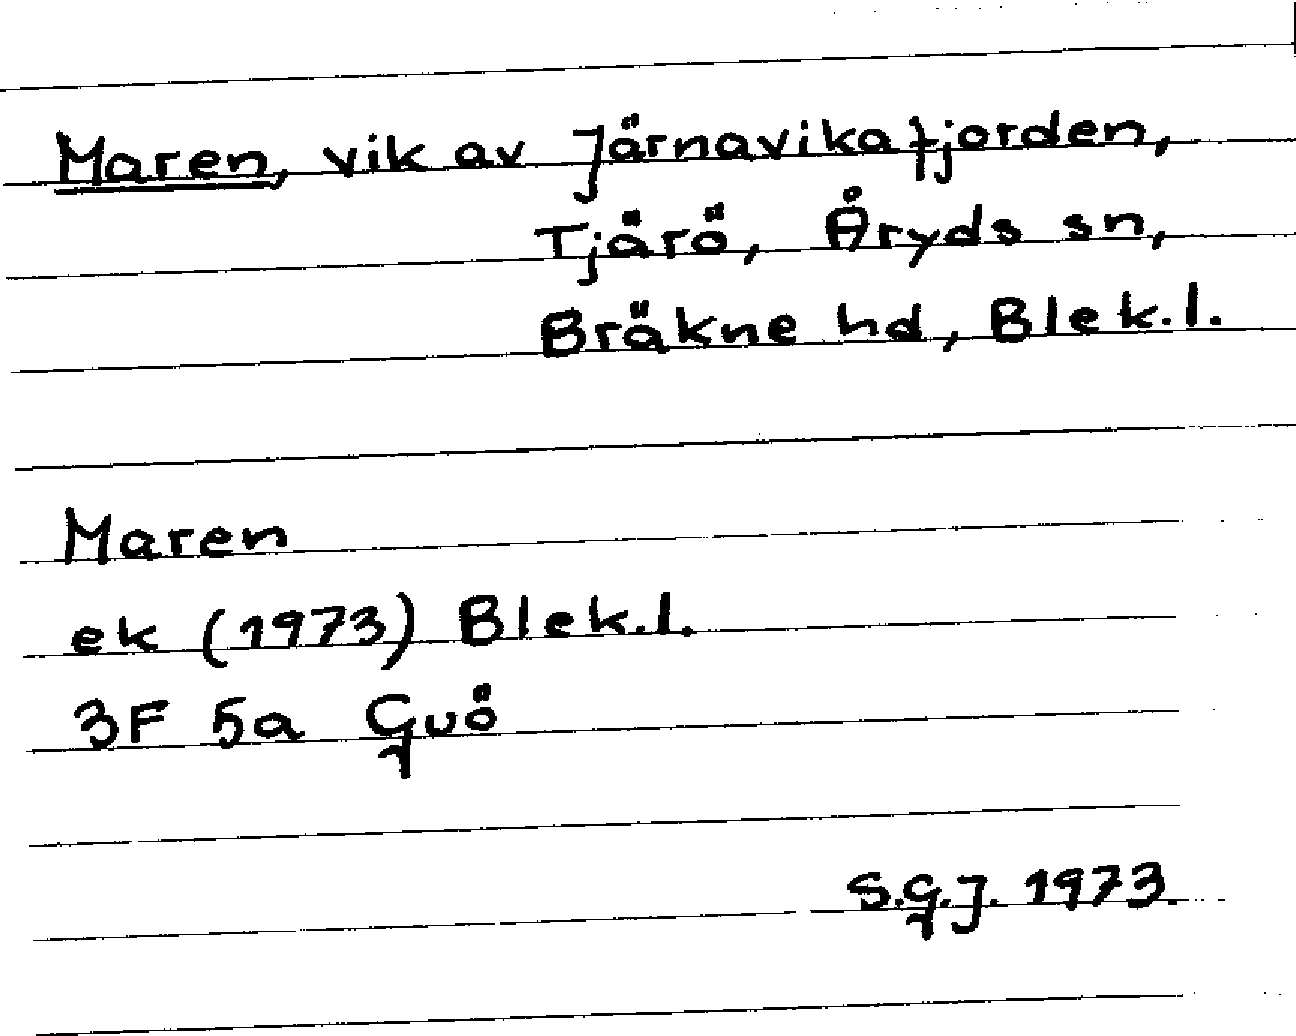 Maren, vik av Järnavikafjorden,
Tjärö, Åryds sn,
Bräkne hd, Blek.l.
Maren
ek (1973) Blek.l.
3F 5a Guö
S.G.J. 1973.